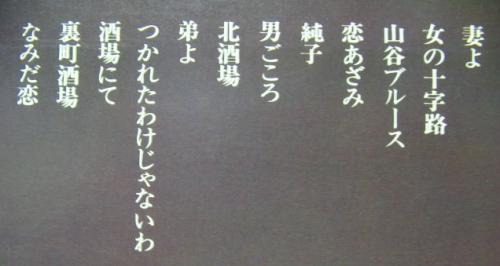 妻よ
女の十字路
山谷ブルース
恋あざみ
純子
男ごころ
北酒場
弟よ
つかれたわけじゃないわ
酒場にて
裏町酒場
なみだ恋